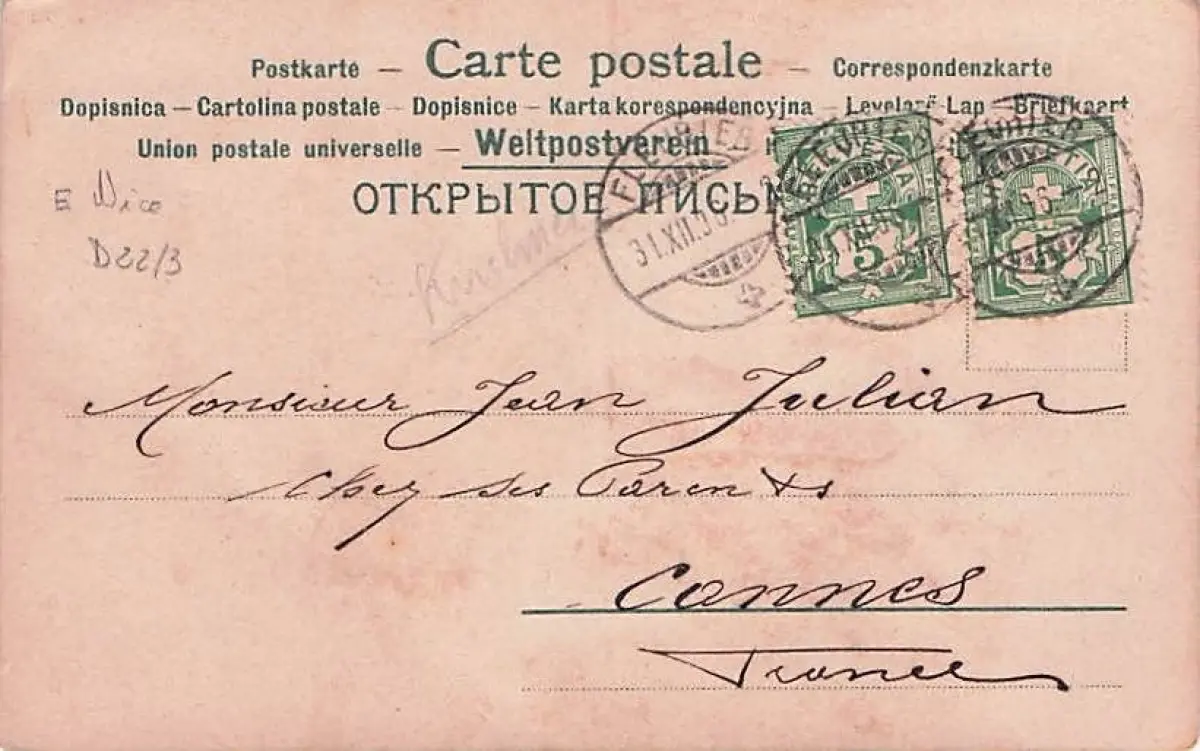 Postkarte — Carte postale — Correspondenzkarte
Dopisnica — Cartolina postale — Dopisnice — Karta korespondencyjna — Levelező-Lap — Briefkaart
Union postale universelle — Weltpostverein —
ОТКРЫТОЕ ПИСЬМ
FLEURIER
31.XII.06
HELVETIA
5
E Nice
D22/3
Monsieur Jean Julian
chez ses Parents
Cannes
France